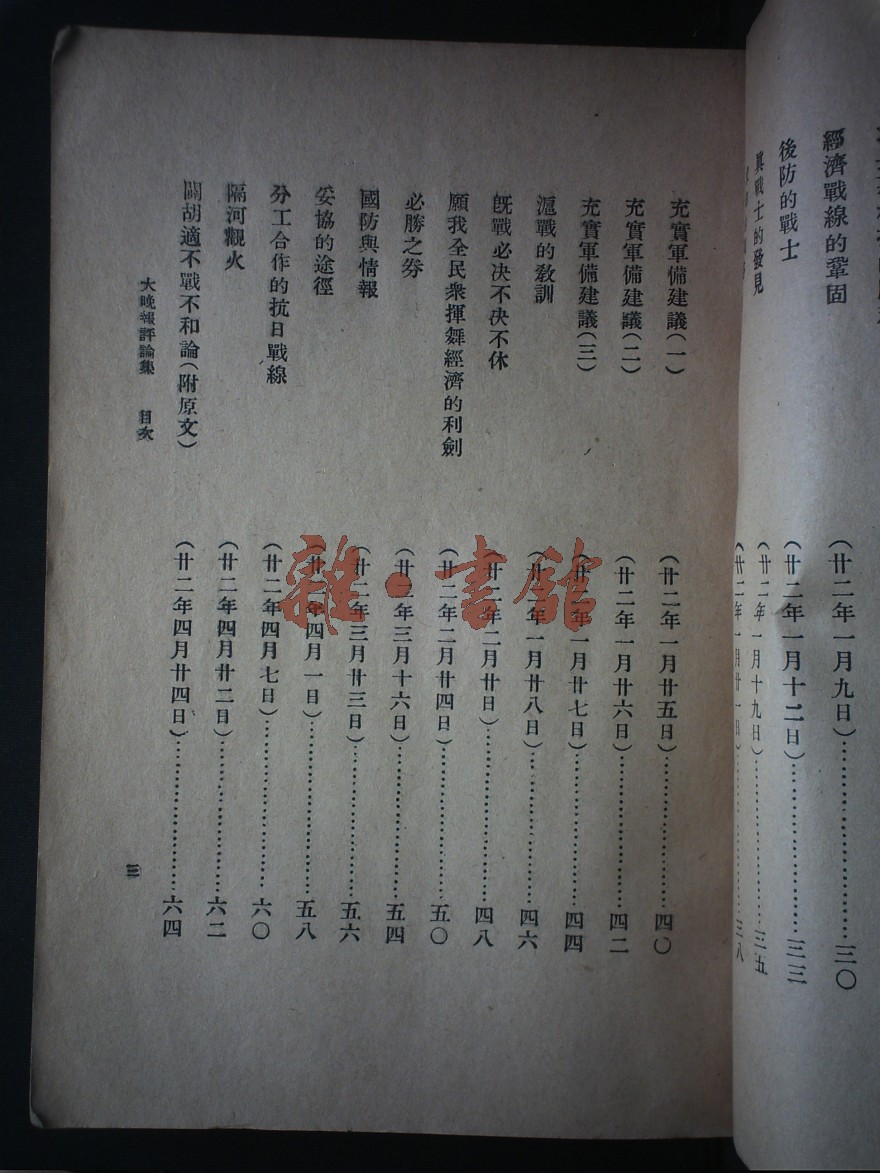 經濟戰線的鞏固（廿二年一月九日）……三〇
後防的戰士（廿二年一月十二日）……三三
真戰士的發見（廿二年一月十九日）……三五
（廿二年一月廿一日）……三八
充實軍備建議（一）（廿二年一月廿五日）……四〇
充實軍備建議（二）（廿二年一月廿六日）……四二
充實軍備建議（三）（廿二年一月廿七日）……四四
滬戰的教訓（廿二年一月廿八日）……四六
旣戰必決不決不休（廿二年二月廿日）……四八
願我全民衆揮舞經濟的利劍（廿二年二月廿四日）……五〇
必勝之劵（廿二年三月十六日）……五四
國防與情報（廿二年三月廿三日）……五六
妥協的途徑（廿二年四月一日）……五八
分工合作的抗日戰線（廿二年四月七日）……六〇
隔河觀火（廿二年四月廿二日）……六二
闢胡適不戰不和論（附原文）（廿二年四月廿四日）……六四
大晚報評論集　目次
三
雜·書館